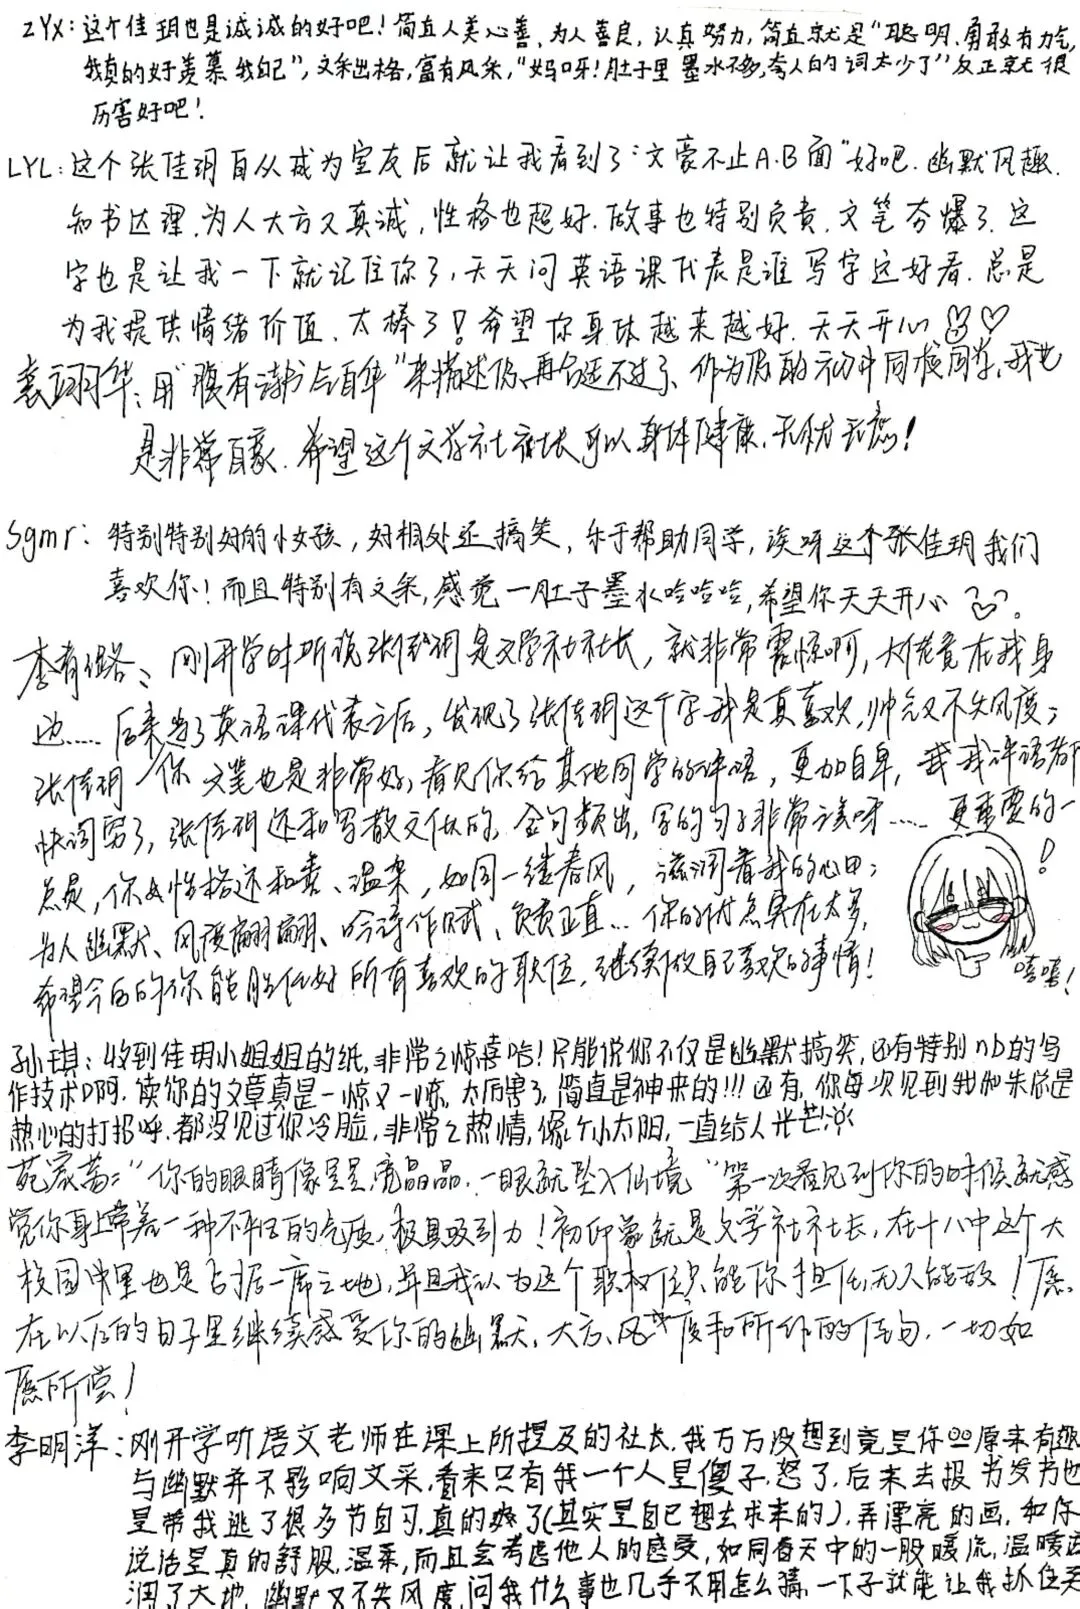 ZYX：这个佳玥也是诚诚的好吧！简直人美心善、为人善良，认真努力，简直就是“聪明、勇敢有力气，
我真的好羡慕我自己”，文采出格，富有风采，“妈呀！肚子里墨水不多，夸人的词太少了”反正就很
厉害好吧！
LYL：这个张佳玥自从成为室友后就让我看到了“文豪不止A.B面”好吧．幽默风趣．
知书达理，为人大方又真诚，性格也超好．做事也特别负责．文笔夯爆了．这
字也是让我一下就记住你了，天天问英语课代表是谁写字这好看．总是
为我提供情绪价值．太棒了！希望你身体越来越好．天天开心
袁诩华：用“腹有诗书气自华”来描述你再合适不过了、作为你的初中同校同学，我也
是非常自豪．希望这个文学社社长可以身体健康，无忧无虑！
Sgmr：特别特别好的小女孩，好相处还搞笑，乐于帮助同学，诶呀这个张佳玥我们
喜欢你！而且特别有文采，感觉一肚子墨水哈哈哈，希望你天天开心
李有璐：刚开学时听说张佳玥是文学社社长，就非常震惊啊，大佬竟在我身
边……后来当了英语课代表之后，发现了张佳玥这个字我是真喜欢，帅气又不失风度；
张佳玥你文笔也是非常好，看见你给其他同学的评语，更加自卑，我我评语都
快词穷了，张佳玥还和写散文似的，金句频出，写的句子非常美呀……更重要的一
点是，你的性格还和善、温柔，如同一缕春风，滋润着我的心田；
为人幽默、风度翩翩、吟诗作赋、负责正直…你的优点实在太多，
希望今后的你能胜任好所有喜欢的职位，继续做自己喜欢的事情！
嘻嘻！
孙琪：收到佳玥小姐姐的纸，非常之惊喜哈！只能说你不仅是幽默搞笑，还有特别nb的写
作技术啊．读你的文章真是一惊又一惊．太厉害了，简直是神来的!!!还有，你每次见到我和朱总是
热心的打招呼．都没见过你冷脸，非常之热情，像个小太阳，一直给人光芒
苑家萱：“你的眼睛像星星，亮晶晶．一眼就坠入仙境”第一次看见到你的时候就感
觉你身上带着一种不俗的气质，极具吸引力！初印象就是文学社社长，在十八中这个大
校园里也是占据一席之地，并且我认为这个职权位只能你担任，无人能敌！愿
在以后的日子里继续感受你的幽默、大方、风度和所作的佳句．一切如
愿所偿！
李明洋：刚开学听语文老师在课上所提及的社长，我万万没想到竟是你 原来有趣
与幽默并不影响文采，看来只有我一个人是傻子，怒了，后来去报书发书也
是带我逃了很多节自习，真的爽了（其实是自己想去求来的），弄漂亮的画，和你
说话是真的舒服，温柔，而且会考虑他人的感受，如同春天中的一股暖流，温暖
润了大地，幽默又不失风度，问我什么事也几乎不用怎么猜，一下子就能让我抓住